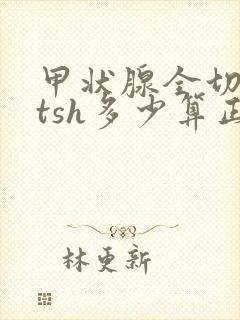 甲状腺全切
tsh多少算正
林更新